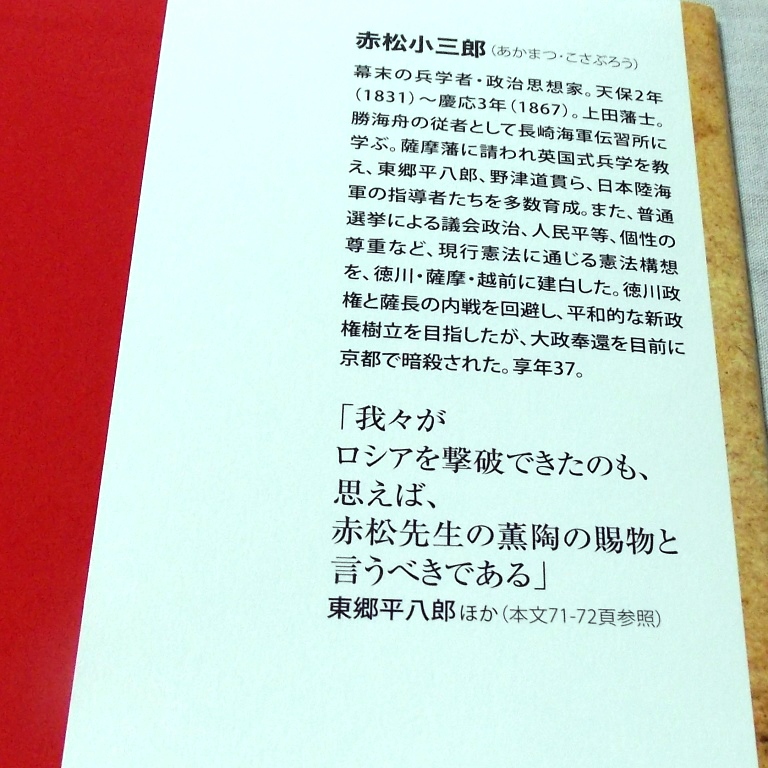 赤松小三郎（あかまつ・こさぶろう）
幕末の兵学者・政治思想家。天保2年
（1831）～慶応3年（1867）。上田藩士。
勝海舟の従者として長崎海軍伝習所に
学ぶ。薩摩藩に請われ英国式兵学を教
え、東郷平八郎、野津道貫ら、日本陸海
軍の指導者たちを多数育成。また、普通
選挙による議会政治、人民平等、個性の
尊重など、現行憲法に通じる憲法構想
を、徳川・薩摩・越前に建白した。徳川政
権と薩長の内戦を回避し、平和的な新政
権樹立を目指したが、大政奉還を目前に
京都で暗殺された。享年37。
「我々が
ロシアを撃破できたのも、
思えば、
赤松先生の薫陶の賜物と
言うべきである」
東郷平八郎 ほか（本文71-72頁参照）